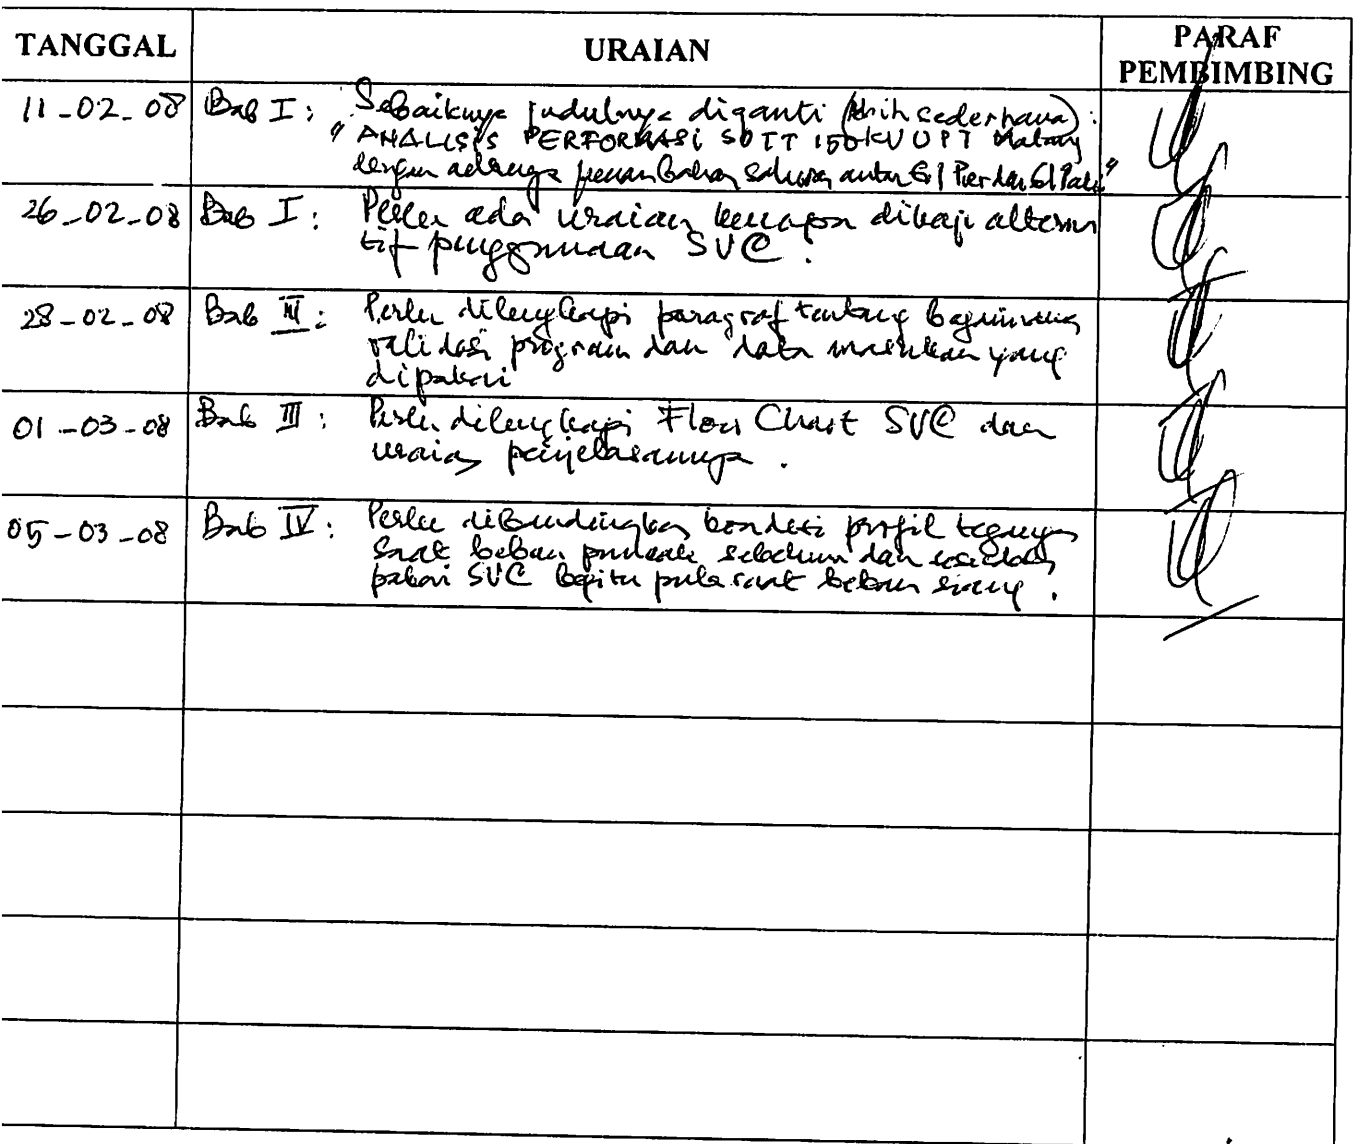 TANGGAL URAIAN PARAF PEMBIMBING
11-02-08 Bab I : Sebaiknya judulnya diganti (lebih sederhana) :
" ANALISIS PERFORMASI SUTT 150 KV UPT Malang
dengan adanya penambahan saluran antar GI Pier dan GI Pakis"
26-02-08 Bab I : Perlu ada uraian kenapa dikaji alterna
tif penggunaan SVC .
28-02-08 Bab III : Perlu dilengkapi paragraf tentang bagaimana
validasi program dan data masukan yang
dipakai
01-03-08 Bab III : Perlu dilengkapi Flow Chart SVC dan
uraian penjelasannya .
05-03-08 Bab IV : Perlu dibandingkan kondisi profil tegangan
saat beban puncak sebelum dan sesudah
pakai SVC begitu pula saat beban siang .